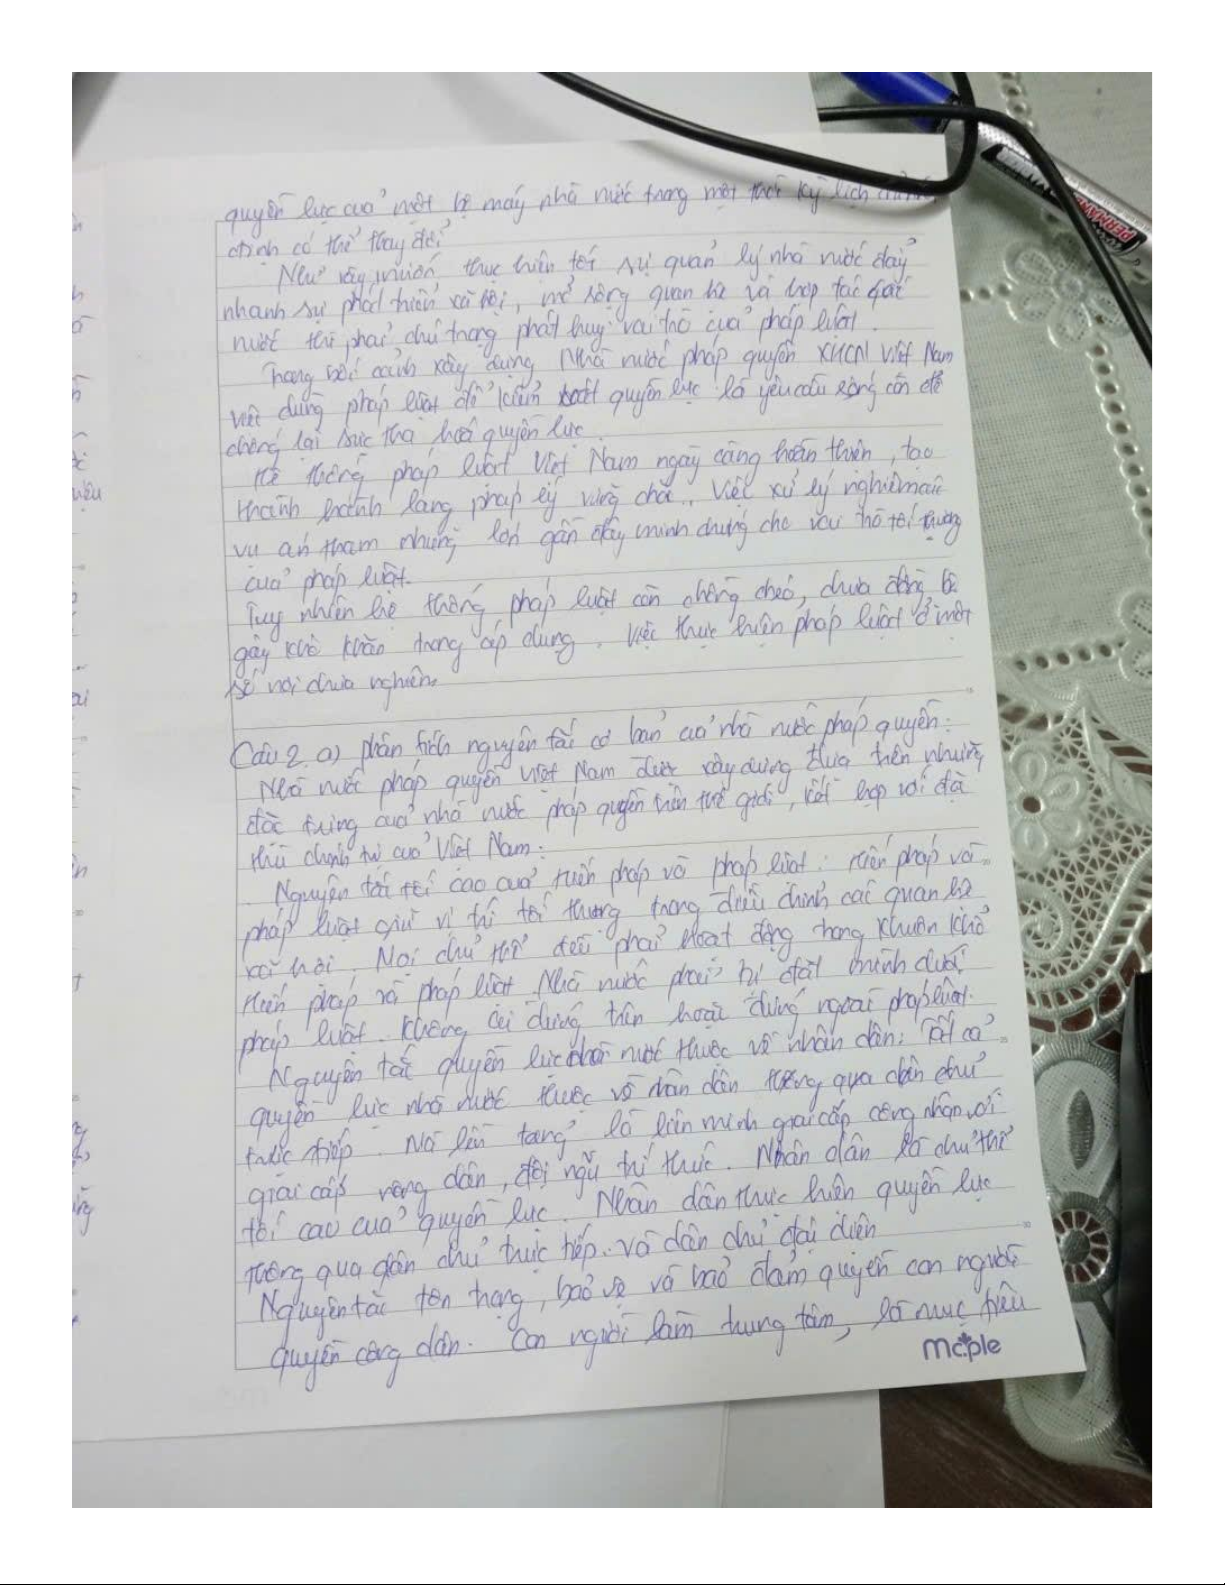 quyền lực của một bộ máy nhà nước trong một thời kỳ lịch
định có thể thay đổi
Như vậy, muốn thực hiện tốt sự quản lý nhà nước đẩy
nhanh sự phát triển xã hội, mở rộng quan hệ và hợp tác
nước thì phải chú trọng phát huy vai trò của pháp luật.
Trong bối cảnh xây dựng Nhà nước pháp quyền XHCN Việt Nam
việc dùng pháp luật để kiểm soát quyền lực là yêu cầu sống còn để
chống lại sức tha hoá quyền lực.
Hệ thống pháp luật Việt Nam ngày càng hoàn thiện, tạo
thành hành lang pháp lý vững chắc. Việc xử lý nghiêm các
vụ án tham nhũng lớn gần đây minh chứng cho vai trò tối thượng
của pháp luật.
Tuy nhiên hệ thống pháp luật còn chồng chéo, chưa đồng bộ
gây khó khăn trong áp dụng. Việc thực hiện pháp luật ở một
số nơi chưa nghiêm.
Câu 2. a) phân tích nguyên tắc cơ bản của nhà nước pháp quyền:
Nhà nước pháp quyền Việt Nam được xây dựng dựa trên những
đặc trưng của nhà nước pháp quyền trên thế giới, kết hợp với đặc
thù chính trị của Việt Nam:
Nguyên tắc tối cao của Hiến pháp và pháp luật: Hiến pháp và
pháp luật giữ vị trí tối thượng trong điều chỉnh các quan hệ
xã hội. Mọi chủ thể đều phải hoạt động trong khuôn khổ
Hiến pháp và pháp luật. Nhà nước phải tự đặt mình dưới
pháp luật. Không có đứng trên hoặc đứng ngoài pháp luật.
Nguyên tắc quyền lực nhà nước thuộc về nhân dân: Tất cả
quyền lực nhà nước thuộc về nhân dân thông qua dân chủ
trực tiếp. Nó nền tảng là liên minh giai cấp công nhân với
giai cấp nông dân, đội ngũ trí thức. Nhân dân là chủ thể
tối cao của quyền lực. Nhân dân thực hiện quyền lực
thông qua dân chủ trực tiếp. và dân chủ đại diện
Nguyên tắc tôn trọng, bảo vệ và bảo đảm quyền con người
quyền công dân. Con người làm trung tâm, là mục tiêu
maple